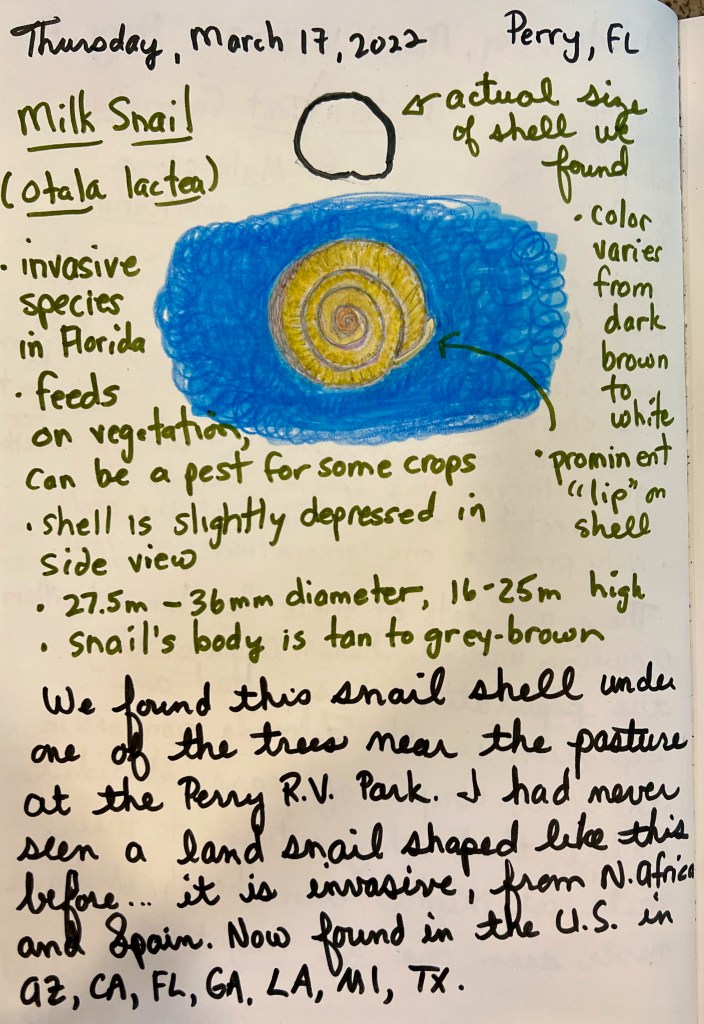 Thursday, March 17, 2022 Perry, FL
Milk Snail
(otala lactea)
actual size
of shell we
found
• invasive
species
in Florida
• feeds
on vegetation,
can be a pest for some crops
• color
varies
from
dark
brown
to
white
• prominent
"lip" on
shell
• shell is slightly depressed in
side view
• 27.5m - 36mm diameter, 16-25m high
• snail's body is tan to grey-brown
We found this snail shell under
one of the trees near the pasture
at the Perry R.V. Park. I had never
seen a land snail shaped like this
before... it is invasive, from N. Africa
and Spain. Now found in the U.S. in
AZ, CA, FL, GA, LA, MI, TX.